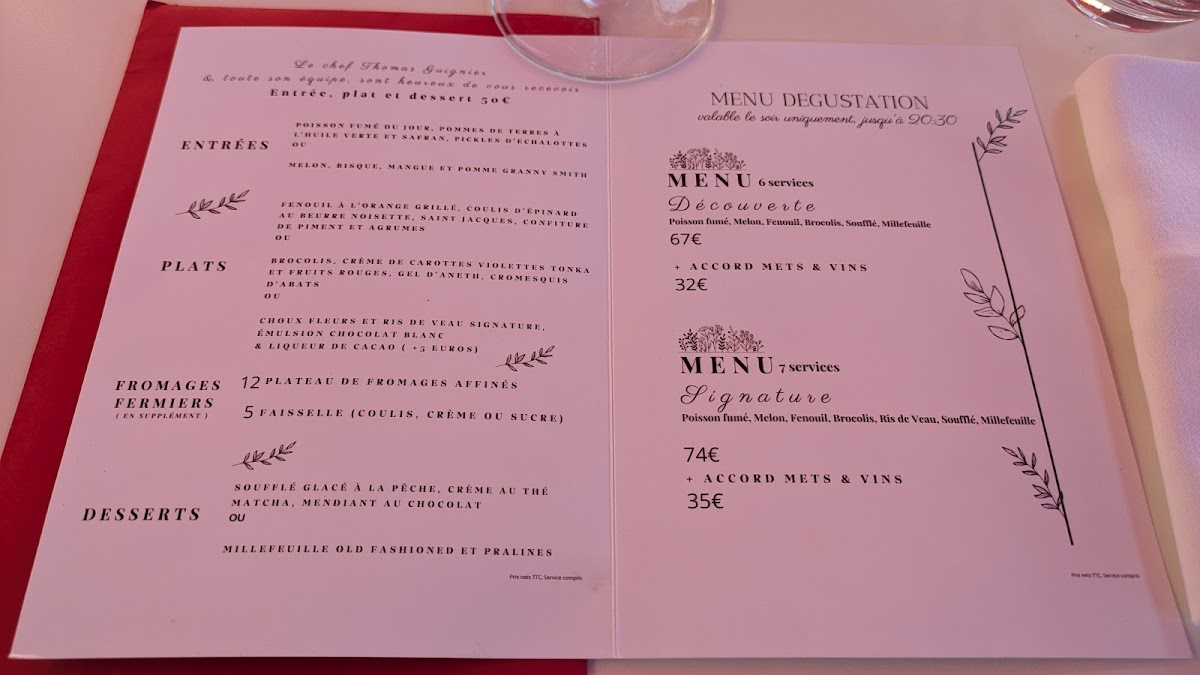 Le chef Thomas Guignier
& toute son équipe, sont heureux de vous recevoir
Entrée, plat et dessert 50€
ENTRÉES
POISSON FUMÉ DU JOUR, POMMES DE TERRES À
L'HUILE VERTE ET SAFRAN, PICKLES D'ECHALOTTES
OU
MELON, BISQUE, MANGUE ET POMME GRANNY SMITH
PLATS
FENOUIL À L'ORANGE GRILLÉ, COULIS D'ÉPINARD
AU BEURRE NOISETTE, SAINT JACQUES, CONFITURE
DE PIMENT ET AGRUMES
OU
BROCOLIS, CRÈME DE CAROTTES VIOLETTES TONKA
ET FRUITS ROUGES, GEL D'ANETH, CROMESQUIS
D'ABATS
OU
CHOUX FLEURS ET RIS DE VEAU SIGNATURE,
ÉMULSION CHOCOLAT BLANC
& LIQUEUR DE CACAO ( +5 EUROS)
FROMAGES
FERMIERS
( EN SUPPLÉMENT )
12 PLATEAU DE FROMAGES AFFINÉS
5 FAISSELLE (COULIS, CRÈME OU SUCRE)
DESSERTS
SOUFFLÉ GLACÉ À LA PÊCHE, CRÈME AU THÉ
MATCHA, MENDIANT AU CHOCOLAT
OU
MILLEFEUILLE OLD FASHIONED ET PRALINES
Prix nets TTC, Service compris
MENU DEGUSTATION
valable le soir uniquement, jusqu'à 20:30
MENU 6 services
Découverte
Poisson fumé, Melon, Fenouil, Brocolis, Soufflé, Millefeuille
67€
+ ACCORD METS & VINS
32€
MENU 7 services
Signature
Poisson fumé, Melon, Fenouil, Brocolis, Ris de Veau, Soufflé, Millefeuille
74€
+ ACCORD METS & VINS
35€
Prix nets TTC, Service compris